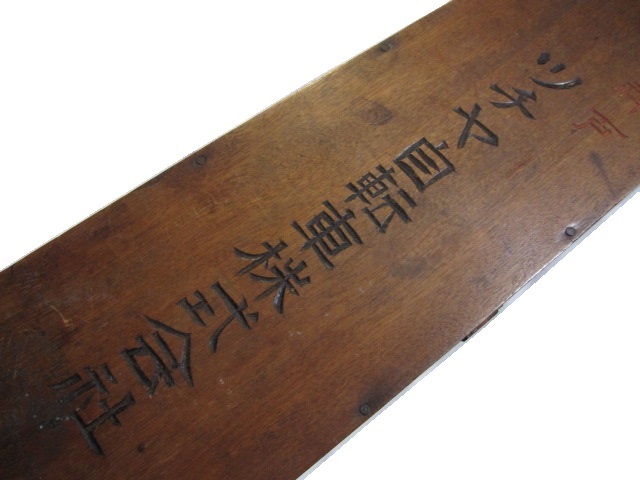 ツチヤ自転車株式会社